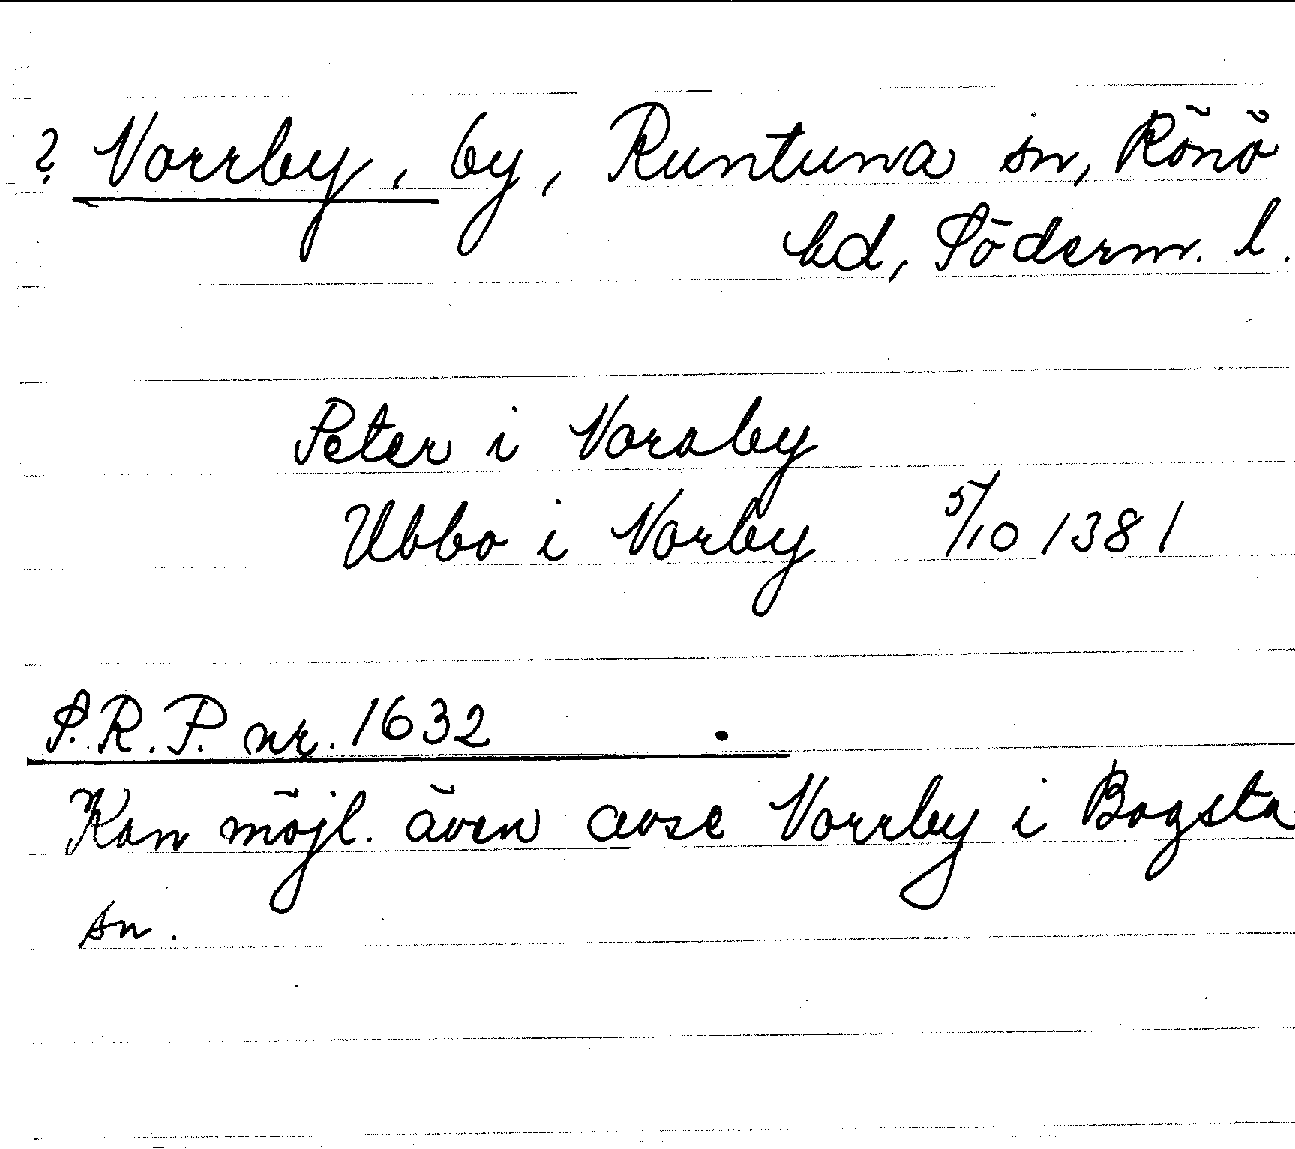 ? Norrby, by, Runtuna sn, Rönö
hd, Söderm. l.
Peter i Noraby
Ubbo i Norby 5/10 1381
S.R.P. nr. 1632
Kan möjl. även avse Norrby i Bogsta
sn.